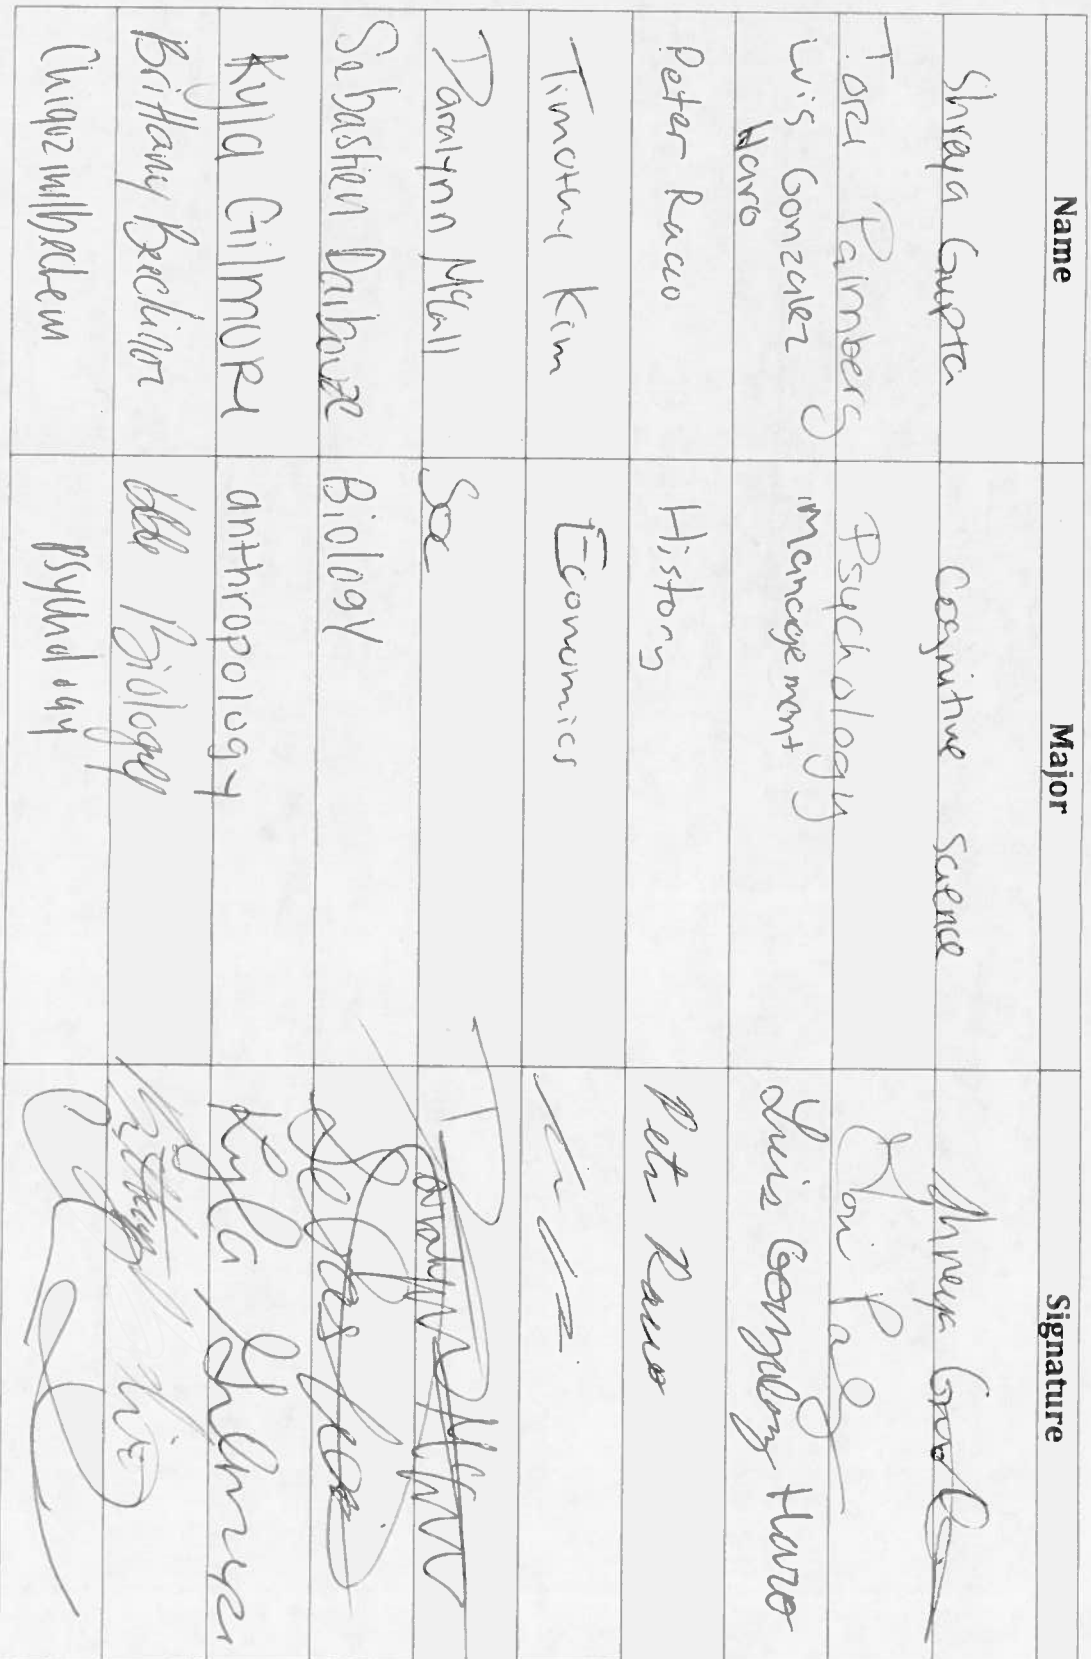 Name Major Signature
Shreya Gupta Cognitive Science Shreya
Tori Paimberg Psychology Tori
Luis Gonzalez Haro Management Luis Gonzalez Haro
Peter Racao History Peter
Timothy Kim Economics
Daralynn McCall Soc Daralynn
Sebastien Biology
Kyla Gilmore anthropology Kyla Gilmore
Brittany Biology
psychology